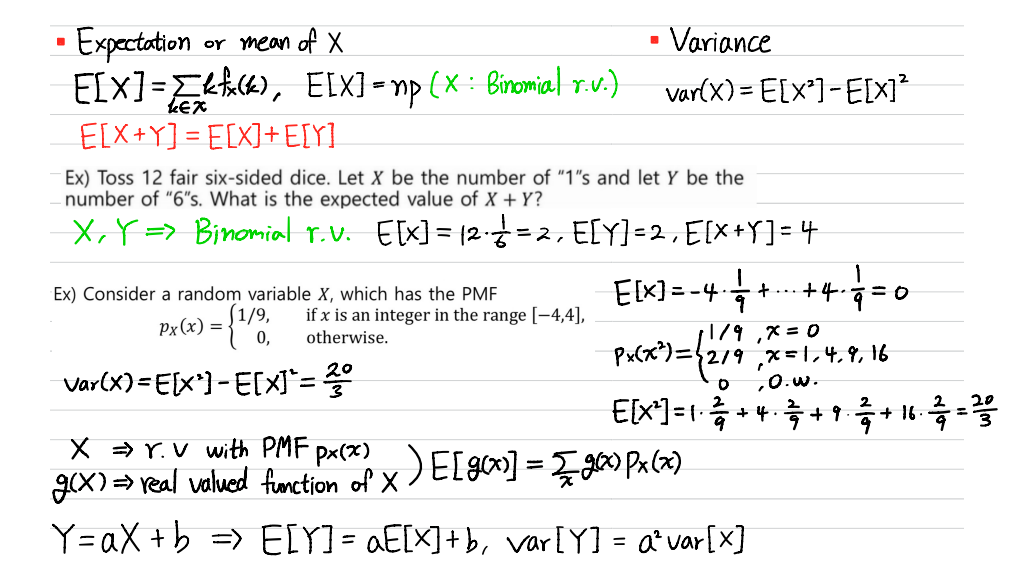 ▪ Expectation or mean of X
E[X] = Σ_{k∈x} k f_X(k), E[X] = np (X : Binomial r.v.)
E[X+Y] = E[X]+E[Y]
▪ Variance
var(X) = E[X²] - E[X]²
Ex) Toss 12 fair six-sided dice. Let X be the number of "1"s and let Y be the
number of "6"s. What is the expected value of X + Y?
X, Y ⇒ Binomial r.v. E[X] = 12·1/6 = 2, E[Y] = 2, E[X+Y] = 4
Ex) Consider a random variable X, which has the PMF
p_X(x) = { 1/9, if x is an integer in the range [−4,4],
0, otherwise.
var(X) = E[X²] - E[X]² = 20/3
E[X] = -4·1/9 + ··· + 4·1/9 = 0
p_X(x²) = { 1/9 , x = 0
2/9 , x = 1, 4, 9, 16
0 , o.w.
E[X²] = 1·2/9 + 4·2/9 + 9·2/9 + 16·2/9 = 20/3
X ⇒ r.v with PMF p_X(x)
g(X) ⇒ real valued function of X
) E[g(x)] = Σ_x g(x) p_X(x)
Y = aX + b ⇒ E[Y] = aE[X]+b, var[Y] = a² var[X]